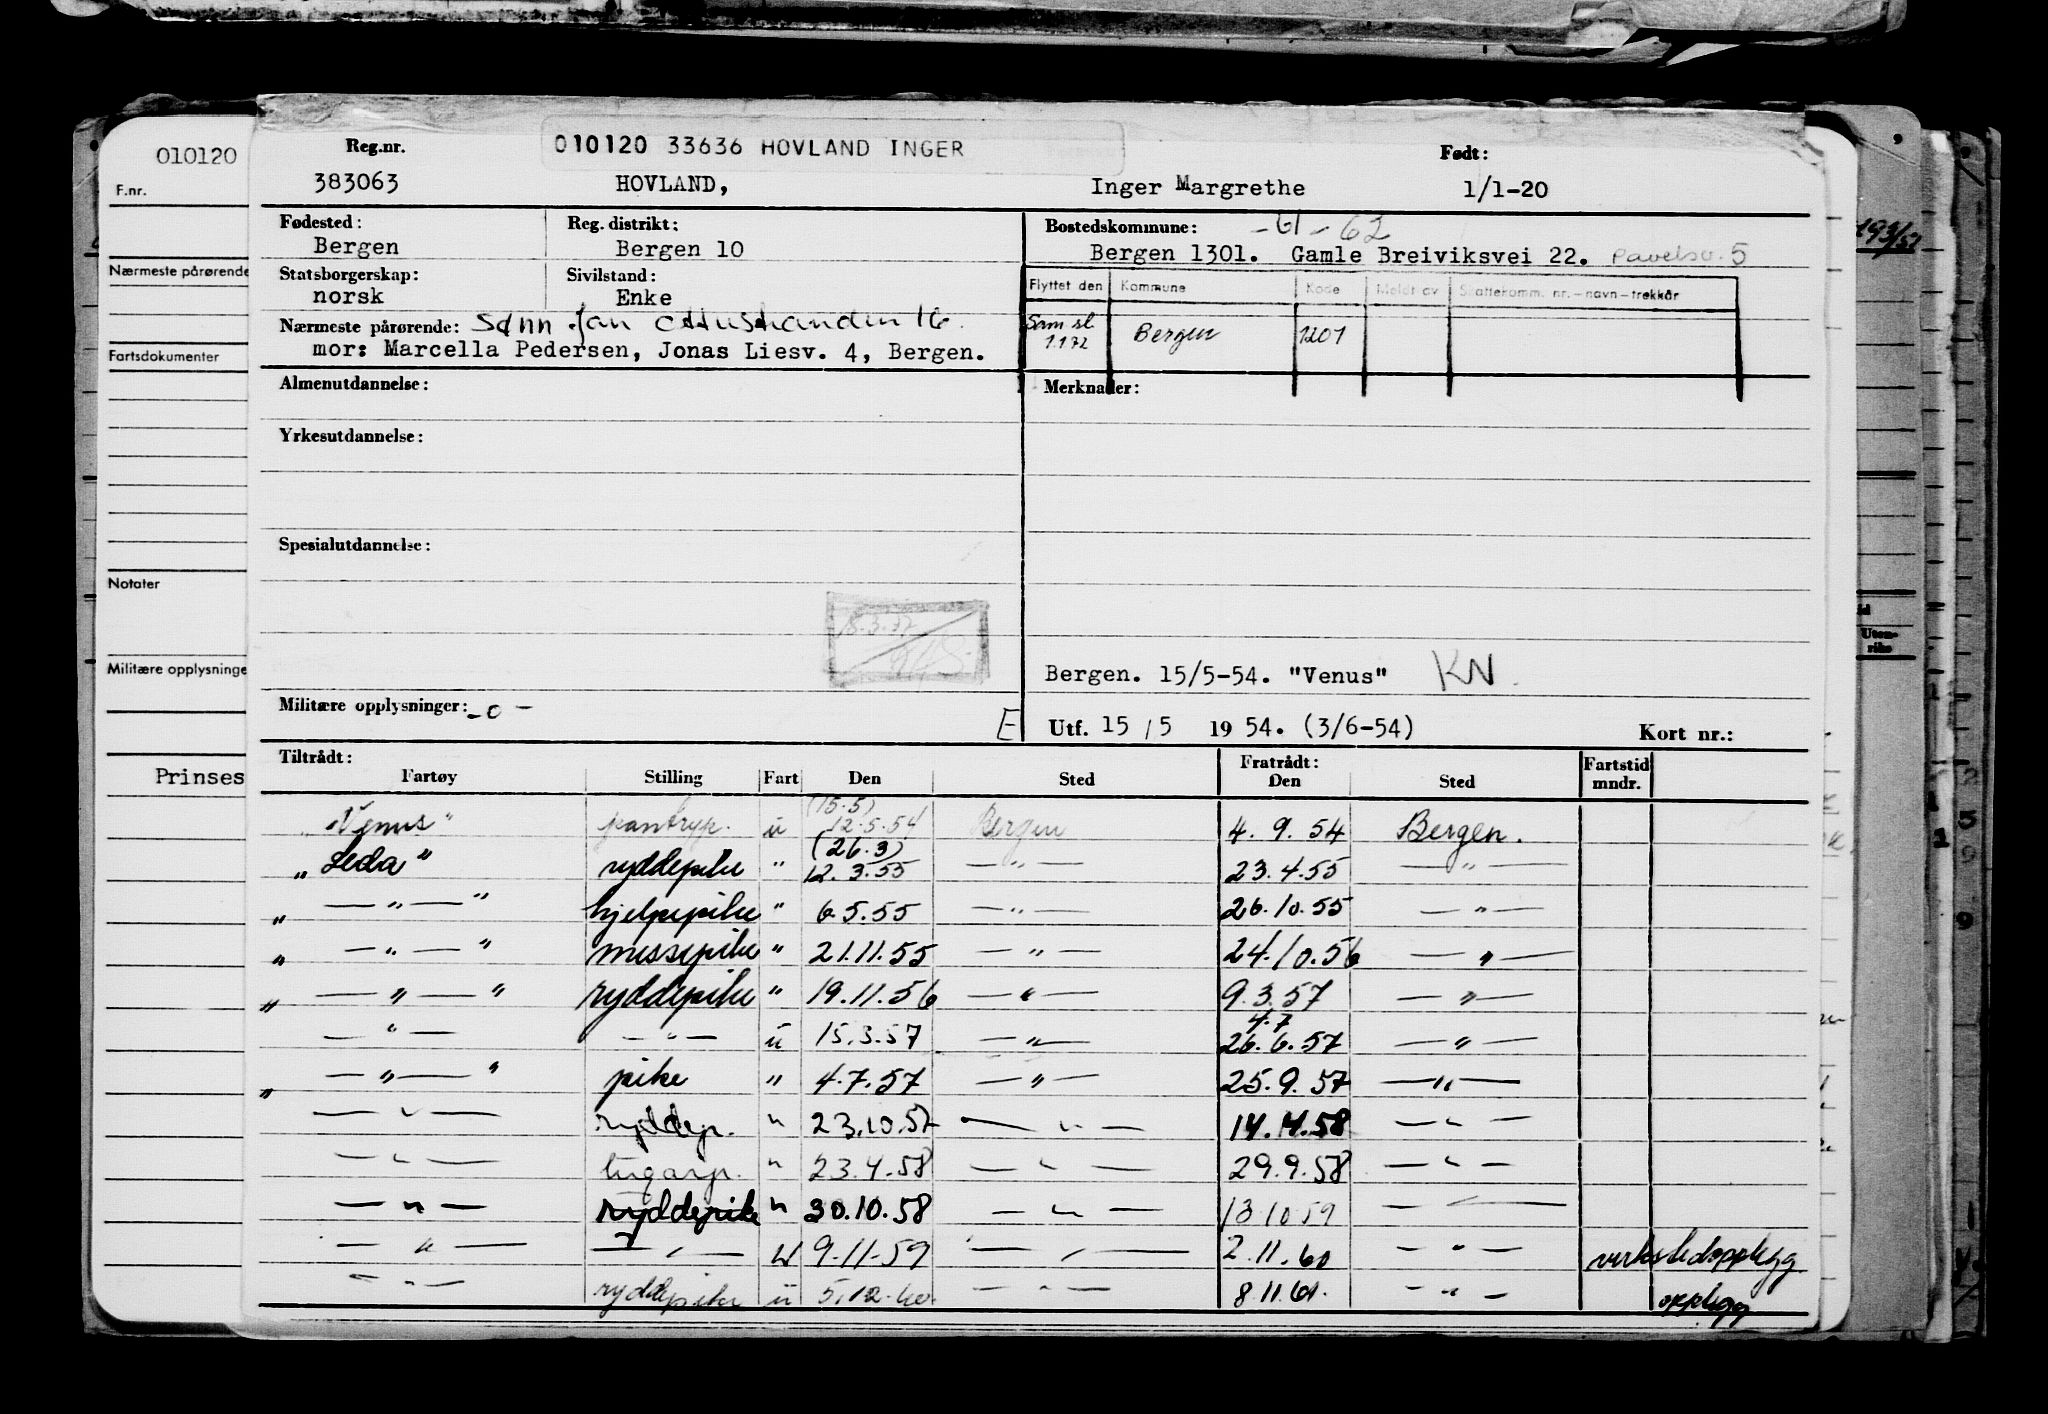 010120
F.nr.
Nærmeste pårørende
Fartsdokumenter
Notater
Militære opplysninge
Prinses
Reg.nr. 010120 33636 HOVLAND INGER Født:
383063 HOVLAND, Inger Margrethe 1/1-20
Fødested: Reg. distrikt: Bostedskommune: -61-62
Bergen Bergen 10 Bergen 1301. Gamle Breiviksvei 22. 5
Statsborgerskap: Sivilstand: Flyttet den Kommune Kode Meldt av Skattekomm. nr.-navn-trekkår
norsk Enke
Nærmeste pårørende: Sønn Jan 16. Sam sl. 1.1 72 Bergen 1201
mor: Marcella Pedersen, Jonas Liesv. 4, Bergen.
Almenutdannelse: Merknader:
Yrkesutdannelse:
Spesialutdannelse:
15.3.57
Bergen. 15/5-54. "Venus" KN
Militære opplysninger: -o-
E Utf. 15/5 1954. (3/6-54) Kort nr.:
Tiltrådt: Fratrådt: Fartstid
Fartøy Stilling Fart Den Sted Den Sted mndr.
"Venus" pantryp. u (15.5) 12.5.54 Bergen 4.9.54 Bergen.
"Leda" ryddepike " (26.3) 12.3.55 —"— 23.4.55 —"—
" —"— " hjelpepike " 6.5.55 —"— 26.10.55 —"—
" —"— " messepike " 21.11.55 —"— 24.10.56 —"—
" —"— " ryddepike " 19.11.56 —"— 9.3.57 —"—
—"— —"— u 15.3.57 —"— 4.7 26.6.57 —"—
" —"— " pike " 4.7.57 —"— 25.9.57 —"—
—"— ryddep. " 23.10.57 —"— 14.4.58 —"—
—"— lugarp. " 23.4.58 —"— 29.9.58 —"—
—"— ryddepike " 30.10.58 —"— 13.10.59 —"—
—"— —"— u 9.11.59 —"— 2.11.60 —"— verkstedopplegg
—"— ryddepike u 5.12.60. —"— 8.11.61. —"— opplegg
193/57
Uten-
riks